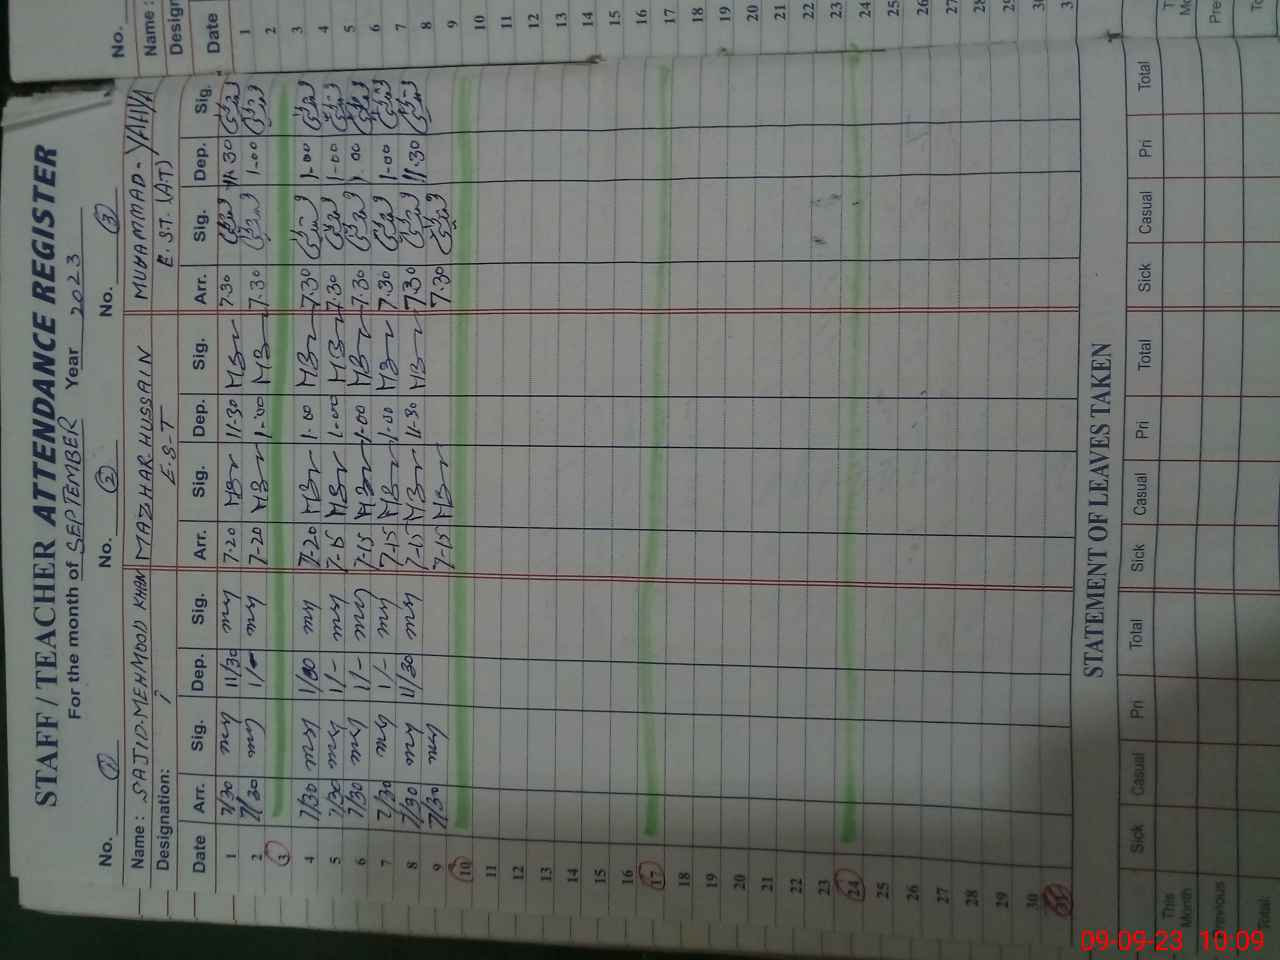 STAFF / TEACHER ATTENDANCE REGISTER
For the month of SEPTEMBER Year 2023
No. 1 No. 2 No. 3
Name: SAJID MEHMOOD KHAN MAZHAR HUSSAIN MUHAMMAD-YAHYA
Designation: E.S-T E.S.T. (AT)
Date Arr. Sig. Dep. Sig. Arr. Sig. Dep. Sig. Arr. Sig. Dep. Sig.
1 7/30 11/30 7-20 11-30 7.30 11.30
2 7/30 1/- 7-20 1-00 7.30 1-00
3
4 7/30 1/00 7-20 1.00 7.30 1.00
5 7/30 1/- 7-15 1-00 7.30 1-00
6 7/30 1/- 7-15 1-00 7.30 1.00
7 7/30 1/- 7-15 1-00 7.30 1-00
8 7/30 11/30 7-15 11-30 7.30 11.30
9 7/30 7-15 7.30
10
11
12
13
14
15
16
17
18
19
20
21
22
23
24
25
26
27
28
29
30
31
STATEMENT OF LEAVES TAKEN
Sick Casual Pri Total Sick Casual Pri Total Sick Casual Pri Total
This Month
Previous
Total
No.
Name:
Date
1
2
3
4
5
6
7
8
9
10
11
12
13
14
15
16
17
18
19
20
21
22
23
24
25
26
27
28
09-09-23 10:09